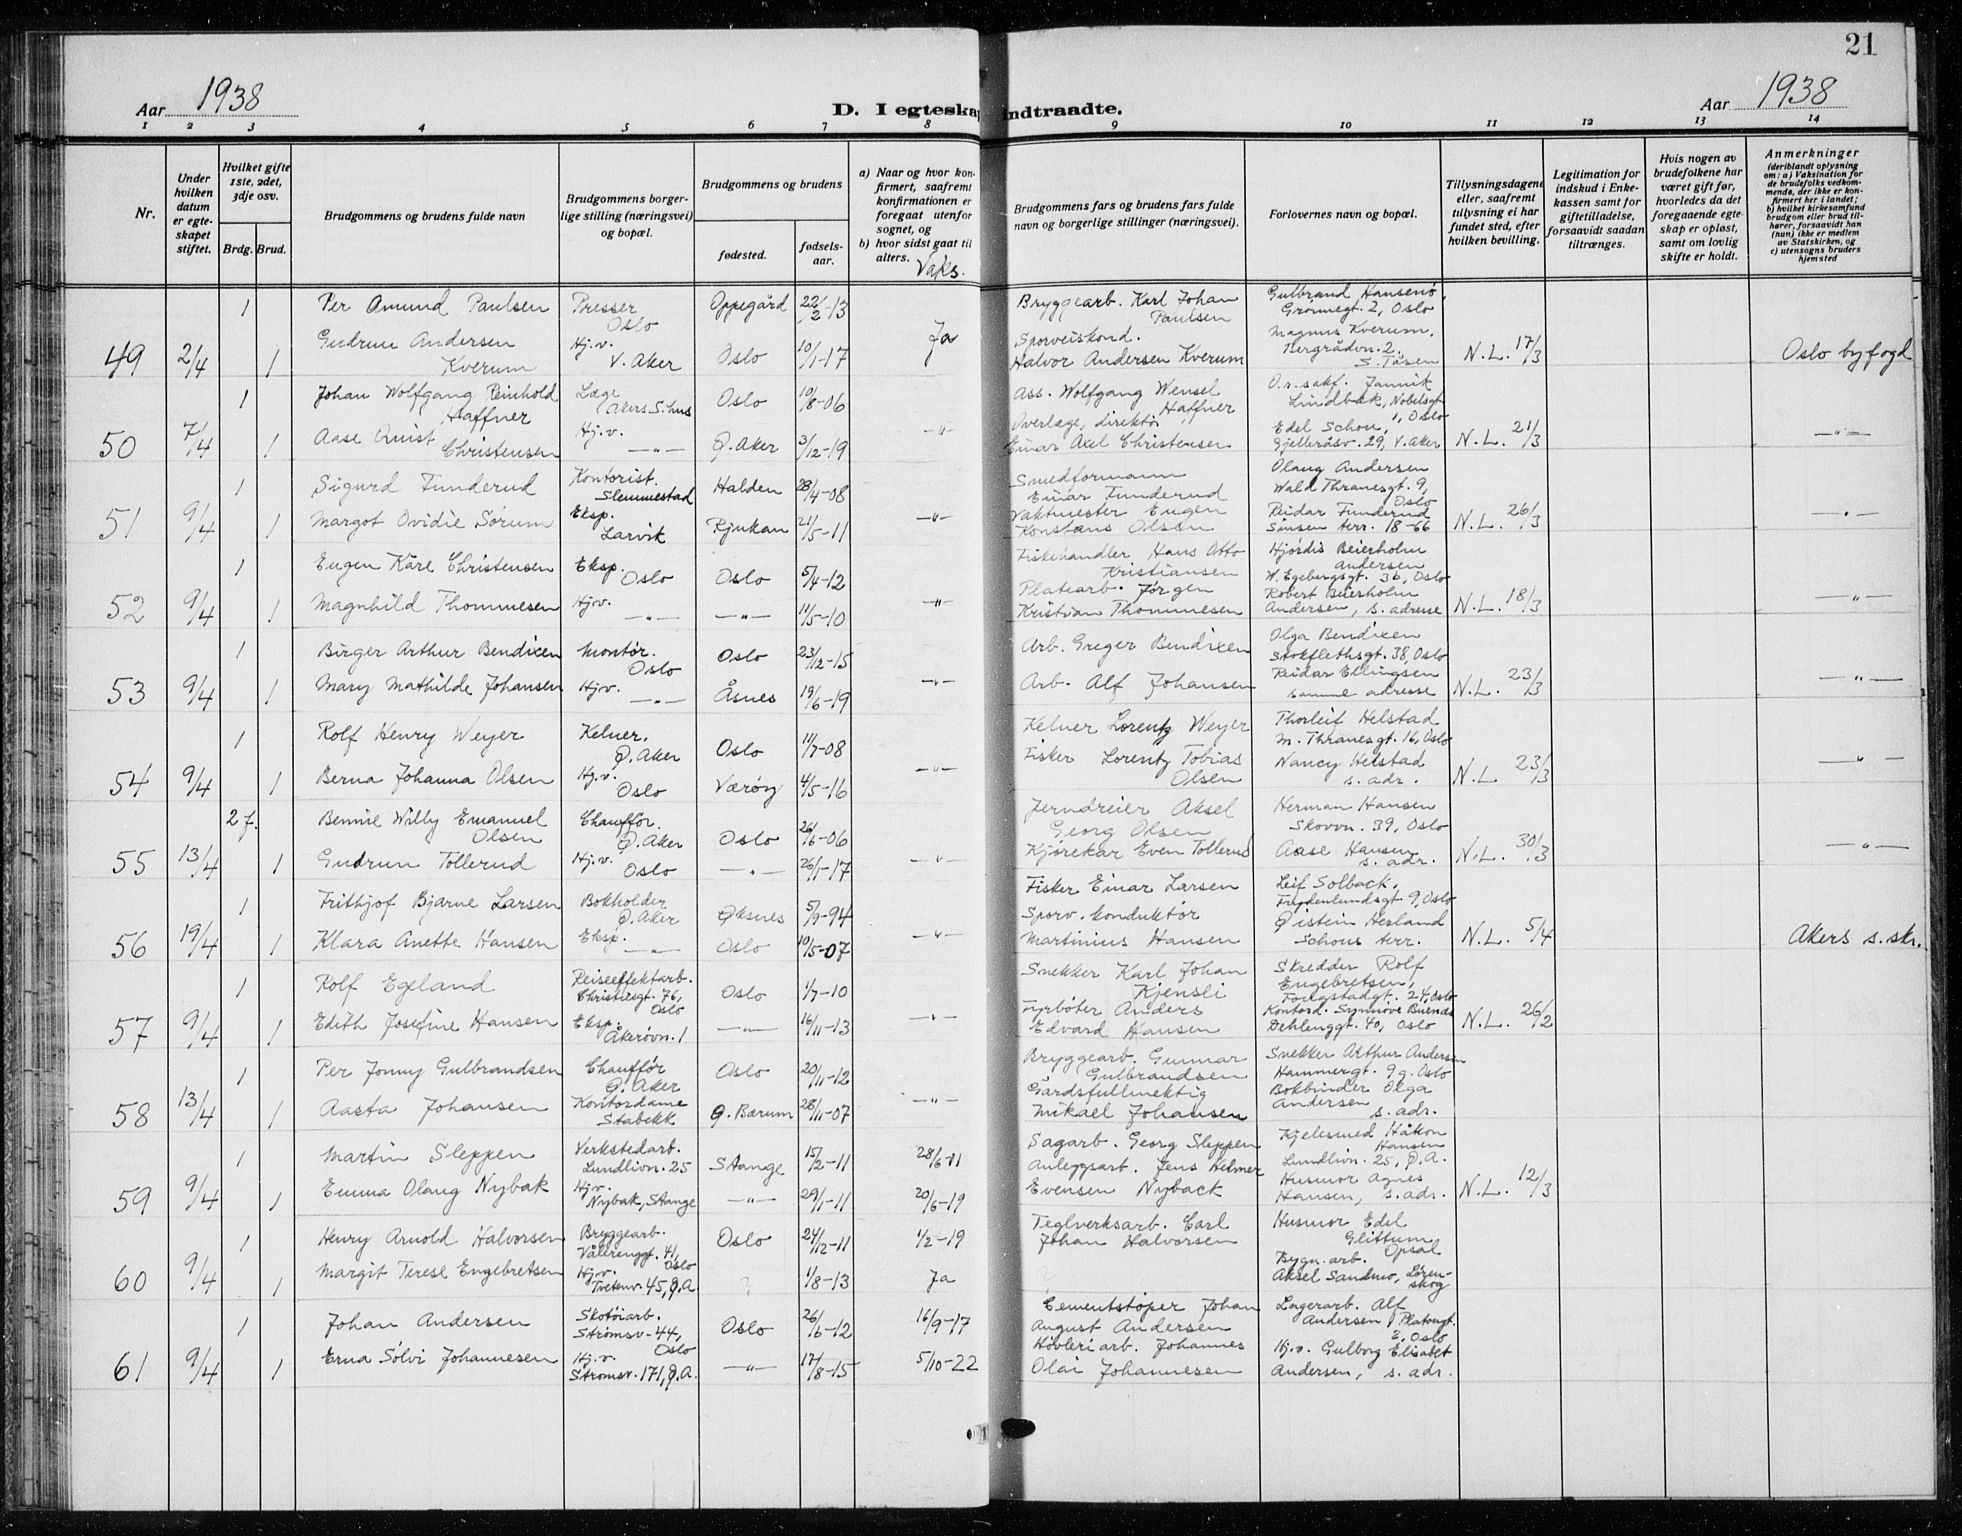 21
Aar 1938
D. I egteskap indtraadte.
Aar 1938
1 2 3 4 5 6 7 8 9 10 11 12 13 14
Nr.
Under hvilken datum er egteskapet stiftet.
Hvilket gifte 1ste, 2det, 3dje osv.
Brdg. Brud.
Brudgommens og brudens fulde navn
Brudgommens borgerlige stilling (næringsvei) og bopæl.
Brudgommens og brudens
fødested.
fødselsaar.
a) Naar og hvor konfirmert, saafremt konfirmationen er foregaat utenfor sognet, og
b) hvor sidst gaat til alters.
Vaks.
Brudgommens fars og brudens fars fulde navn og borgerlige stillinger (næringsvei).
Forlovernes navn og bopæl.
Tillysningsdagene eller, saafremt tillysning ei har fundet sted, efter hvilken bevilling.
Legitimation for indskud i Enkekassen samt for giftetilladelse, forsaavidt saadan tiltrænges.
Hvis nogen av brudefolkene har været gift før, hvorledes da det foregaaende egteskap er opløst, samt om lovlig skifte er holdt.
Anmerkninger
(deriblandt oplysning om: a) Vaksination for de brudefolks vedkommende, der ikke er konfirmert her i landet; b) hvilket kirkesamfund brudgom eller brud tilhører, forsaavidt han (hun) ikke er medlem av Statskirken, og c) utensogns bruders hjemsted
49 2/4 1 Per Amund Paulsen Presser Oslo Oppegård 22/2-13 Ja Bryggearb. Karl Johan Paulsen Gulbrand Hansenø, Grønnegt. 2, Oslo
1 Gudrun Andersen Kverum Hj.v. V. Aker Oslo 10/1-17 Sporveiskond. Halvor Andersen Kverum Magnus Kverum, Bergrådvn. 2. S. Tåsen N.L. 17/3 Oslo byfogd
50 7/4 1 Johan Wolfgang Reinhold Haffner Læge Akers S.hus Oslo 10/8-06 Ass. Wolfgang Wensel Haffner O.r.sakf. Jannik Lindbæk, Nobelsgt 1, Oslo
1 Aase Quist Christensen Hj.v. —"— Ø. Aker 3/12-19 —"— Overlæge, direktør Einar Axel Christensen Edel Schou, Gjelleråsv. 29, V. Aker N.L. 21/3 —"—
51 9/4 1 Sigurd Funderud Kontorist. Slemmestad Halden 28/4-08 Smedformann Einar Funderud Olaug Andersen Wald Thranesgt. 9, Oslo
1 Margot Ovidie Sørum Eksp. Larvik Rjukan 21/5-11 —"— Vaktmester Eugen Konstans Olsen Reidar Funderud Sinsen terr. 18-66 N.L. 26/3 —"—
52 9/4 1 Eugen Kåre Christensen Eksp. Oslo Oslo 5/4-12 Fiskehandler Hans Otto Kristiansen Hjørdis Beierholm Andersen W. Egebergsgt. 3b, Oslo
1 Magnhild Thommesen Hj.v. —"— —"— 11/5-10 —"— Platearb. Jørgen Kristian Thommesen Robert Beierholm Andersen, s. adresse N.L. 18/3 —"—
53 9/4 1 Birger Arthur Bendixen Montør. Oslo Oslo 23/12-15 Arb. Greger Bendixen Olga Bendixen Stokflethsgt. 38, Oslo
1 Mary Mathilde Johansen Hj.v. —"— Åsnes 19/6-19 —"— Arb. Alf Johansen Reidar Ellingsen samme adresse N.L. 23/3 —"—
54 9/4 1 Rolf Henry Weyer Kelner. Ø. Aker Oslo 11/7-08 Kelner Lorentz Weyer Thorleif Helstad M. Thranesgt. 16, Oslo
1 Berna Johanna Olsen Hj.v. Oslo Værøy 4/5-16 —"— Fisker Lorentz Tobias Olsen Nancy Helstad s. adr. N.L. 23/3 —"—
55 13/4 2 f. Bennie Willy Emanuel Olsen Chauffør. Ø. Aker Oslo 26/6-06 Jerndreier Aksel Georg Olsen Herman Hansen Skovvn. 39, Oslo
1 Gudrun Tollerud Hj.v. Oslo —"— 26/1-17 —"— Kjørekar Even Tollerud Aase Hansen s. adr. N.L. 30/3 —"—
56 19/4 1 Frithjof Bjarne Larsen Bokholder Ø. Aker Øksnes 5/9-94 Fisker Einar Larsen Leif Solback, Frydenlundsgt 9, Oslo
1 Klara Anette Hansen Eksp. —"— Oslo 10/5-07 —"— Sporv. konduktør Martinius Hansen Øistein Herland Schous terr. N.L. 5/4 Akers s.skr.
57 9/4 1 Rolf Egeland Reiseeffektarb. Christiesgt. 76, Oslo Oslo 1/7-10 Snekker Karl Johan Kjensli Skredder Rolf Engebretsen, Tougstadgt. 24, Oslo
1 Edith Josefine Hansen Eksp. Åkerøvn. 1 —"— 16/11-13 —"— Fyrbøter Anders Edvard Hansen Kontord. Synnøve Buenæs Dehlenggt. 40, Oslo N.L. 26/2
58 13/4 1 Per Jonny Gulbrandsen Chauffør Ø. Aker Oslo 20/11-12 Bryggearb. Gunnar Gulbrandsen Snekker Arthur Andersen Hammergt. 9 g. Oslo
1 Aasta Johansen Kontordame Stabekk Ø. Bærum 28/11-07 —"— Gårdsfullmektig Mikael Johansen Bokbinder Olga Andersen s. adr.
59 9/4 1 Martin Sleppen Verkstedarb. Lundlivn. 25 Stange 15/2-11 28/6-11 Sagarb. Georg Sleppen Kjelesmed Håkon Hansen Lundlivn. 25, Ø.A.
1 Emma Olaug Nybak Hj.v. Nybak, Stange —"— 29/1-11 20/6-19 Anleggsarb. Jens Helmer Evensen Nyback Husmor Agnes Hansen, s. adr. N.L. 12/3
60 9/4 1 Henry Arnold Halvorsen Bryggearb. Vålerenggt. 41, Oslo Oslo 24/12-11 1/2-19 Teglverksarb. Carl Johan Halvorsen Husmor Edel Glittum Opsal
1 Margit Terese Engebretsen Hj.v. Tvetenv. 45, Ø.A. ? 1/8-13 Ja Bygn.arb. Aksel Sandmo, Lørenskog
61 9/4 1 Johan Andersen Skotøiarb. Strømsv. 44, Oslo Oslo 26/6-12 16/9-17 Cementstøper Johan August Andersen Lagerarb. Alf Andersen, Platougt. 2, Oslo
1 Erna Sølvi Johannesen Hj.v. Strømsv. 171, Ø.A. —"— 17/8-15 5/10-22 Høvleriarb. Johannes Olai Johannesen Hj.v. Gulborg Elisabet Andersen, s. adr.